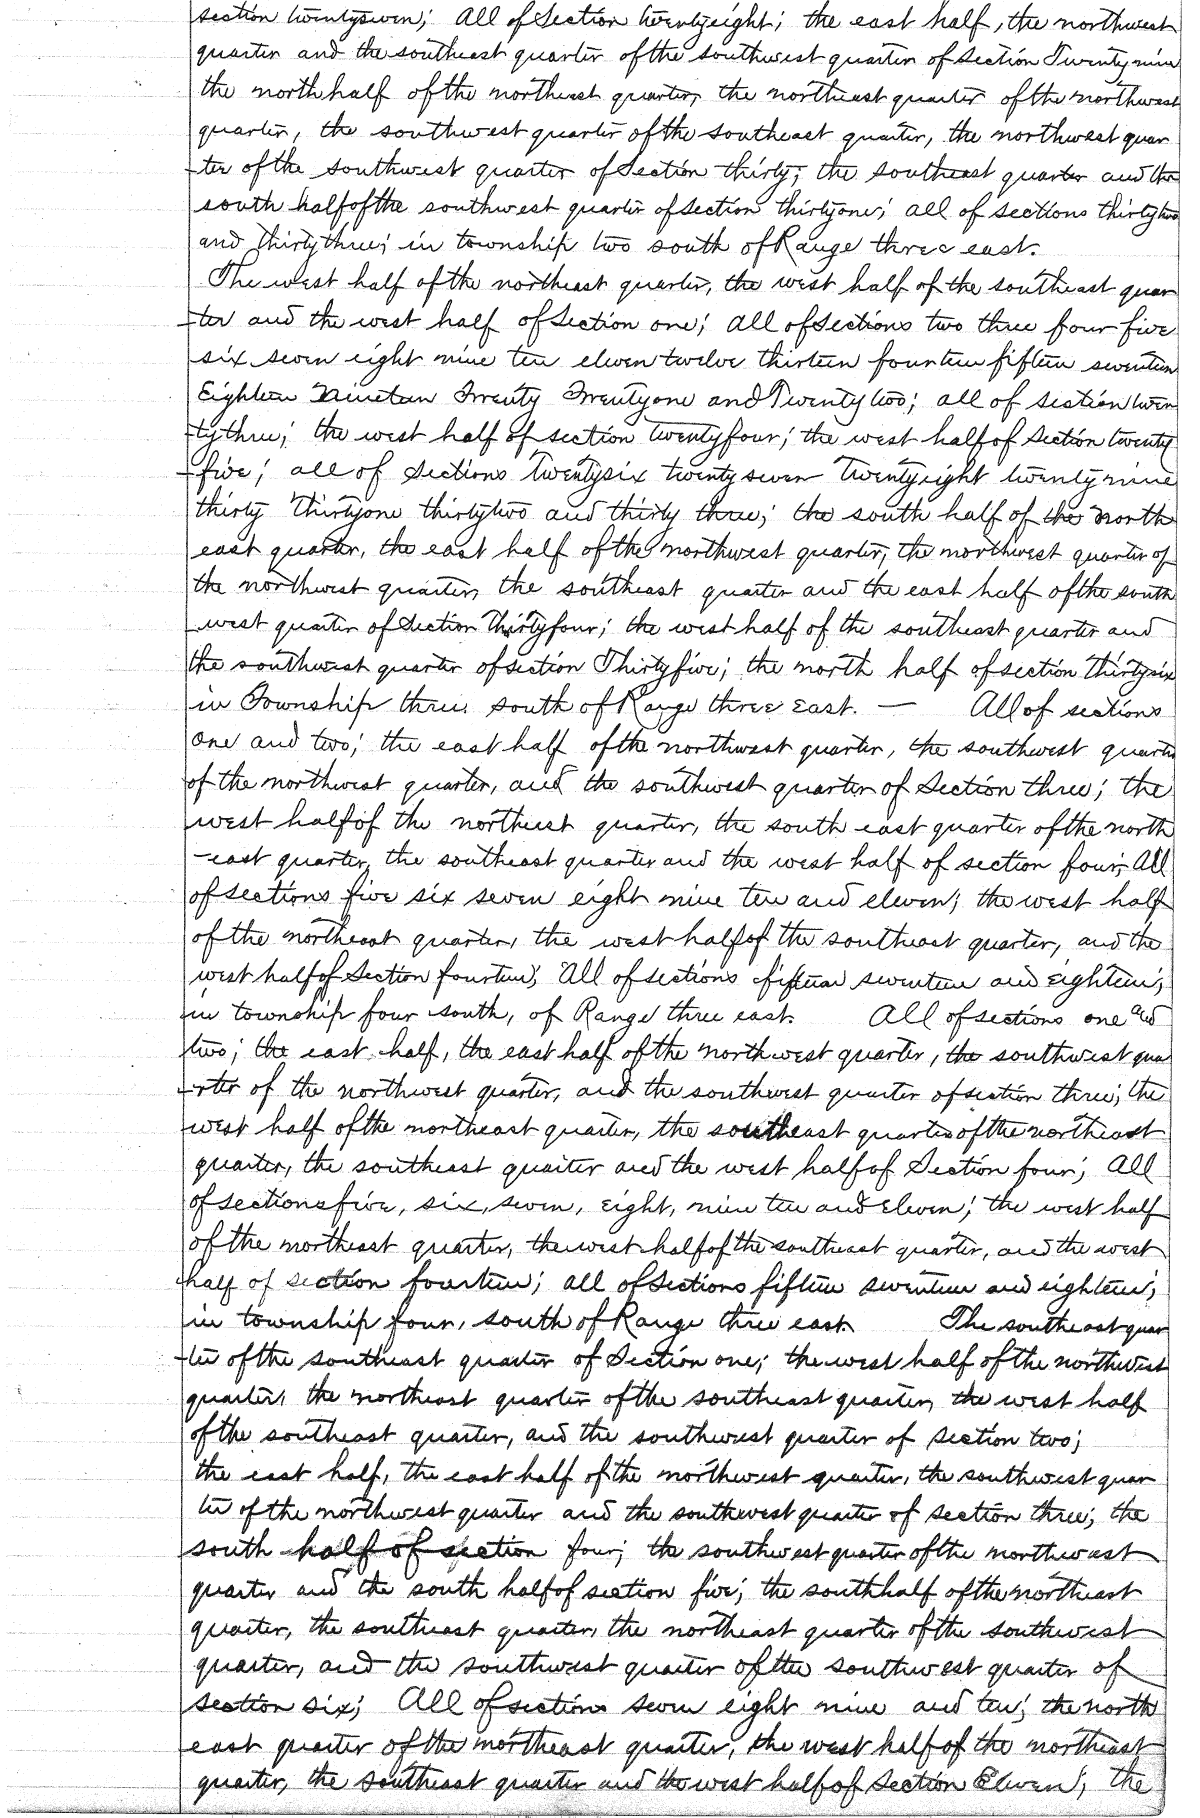 section twentyseven; all of Section twentyeight; the east half, the northwest
quarter and the southeast quarter of the southwest quarter of Section Twentynine
the north half of the northeast quarter, the northeast quarter of the northwest
quarter, the southwest quarter of the southeast quarter, the northwest quar
-ter of the southwest quarter of Section thirty; the southeast quarter and the
south half of the southwest quarter of section thirtyone; all of sections thirtytwo
and thirtythree; in township two south of Range three east.
The west half of the northeast quarter, the west half of the southeast quar
-ter and the west half of Section one; all of sections two three four five
six seven eight nine ten eleven twelve thirteen fourteen fifteen seventeen
Eighteen Nineteen Twenty Twentyone and Twentytwo; all of section twen
-tythree; the west half of section twentyfour; the west half of Section twenty
-five; all of Sections Twentysix twentyseven Twentyeight twentynine
thirty Thirtyone thirtytwo and thirty three; the south half of the north
east quarter, the east half of the northwest quarter, the northwest quarter of
the northwest quarter, the southeast quarter and the east half of the south
-west quarter of Section Thirtyfour; the west half of the southeast quarter and
the southwest quarter of section Thirtyfive; the north half of section thirtysix
in Township three south of Range three East. — All of sections
one and two; the east half of the northwest quarter, the southwest quarter
of the northwest quarter, and the southwest quarter of Section three; the
west half of the northeast quarter, the south east quarter of the north
-east quarter, the southeast quarter and the west half of section four; All
of sections five six seven eight nine ten and eleven; the west half
of the northeast quarter, the west half of the southeast quarter, and the
west half of Section fourteen; All of sections fifteen seventeen and eighteen;
in township four south, of Range three east. All of sections one and
two; the east half, the east half of the northwest quarter, the southwest qua
-rter of the northwest quarter, and the southwest quarter of section three; the
west half of the northeast quarter, the southeast quarter of the northeast
quarter, the southeast quarter and the west half of Section four; All
of sections five, six, seven, eight, nine ten and Eleven; the west half
of the northeast quarter, the west half of the southeast quarter, and the west
half of section fourteen; all of Sections fifteen seventeen and eighteen;
in township four, south of Range three east. The southeast quar
-ter of the southeast quarter of Section one; the west half of the northwest
quarter, the northeast quarter of the southeast quarter, the west half
of the southeast quarter, and the southwest quarter of section two;
the east half, the east half of the northwest quarter, the southwest quar
ter of the northwest quarter and the southwest quarter of section three; the
south half of section four; the southwest quarter of the northwest
quarter and the south half of section five; the south half of the northeast
quarter, the southeast quarter, the northeast quarter of the southwest
quarter, and the southwest quarter of the southwest quarter of
section six; All of sections seven eight nine and ten; the north
east quarter of the northeast quarter, the west half of the northeast
quarter, the southeast quarter and the west half of Section Eleven; the